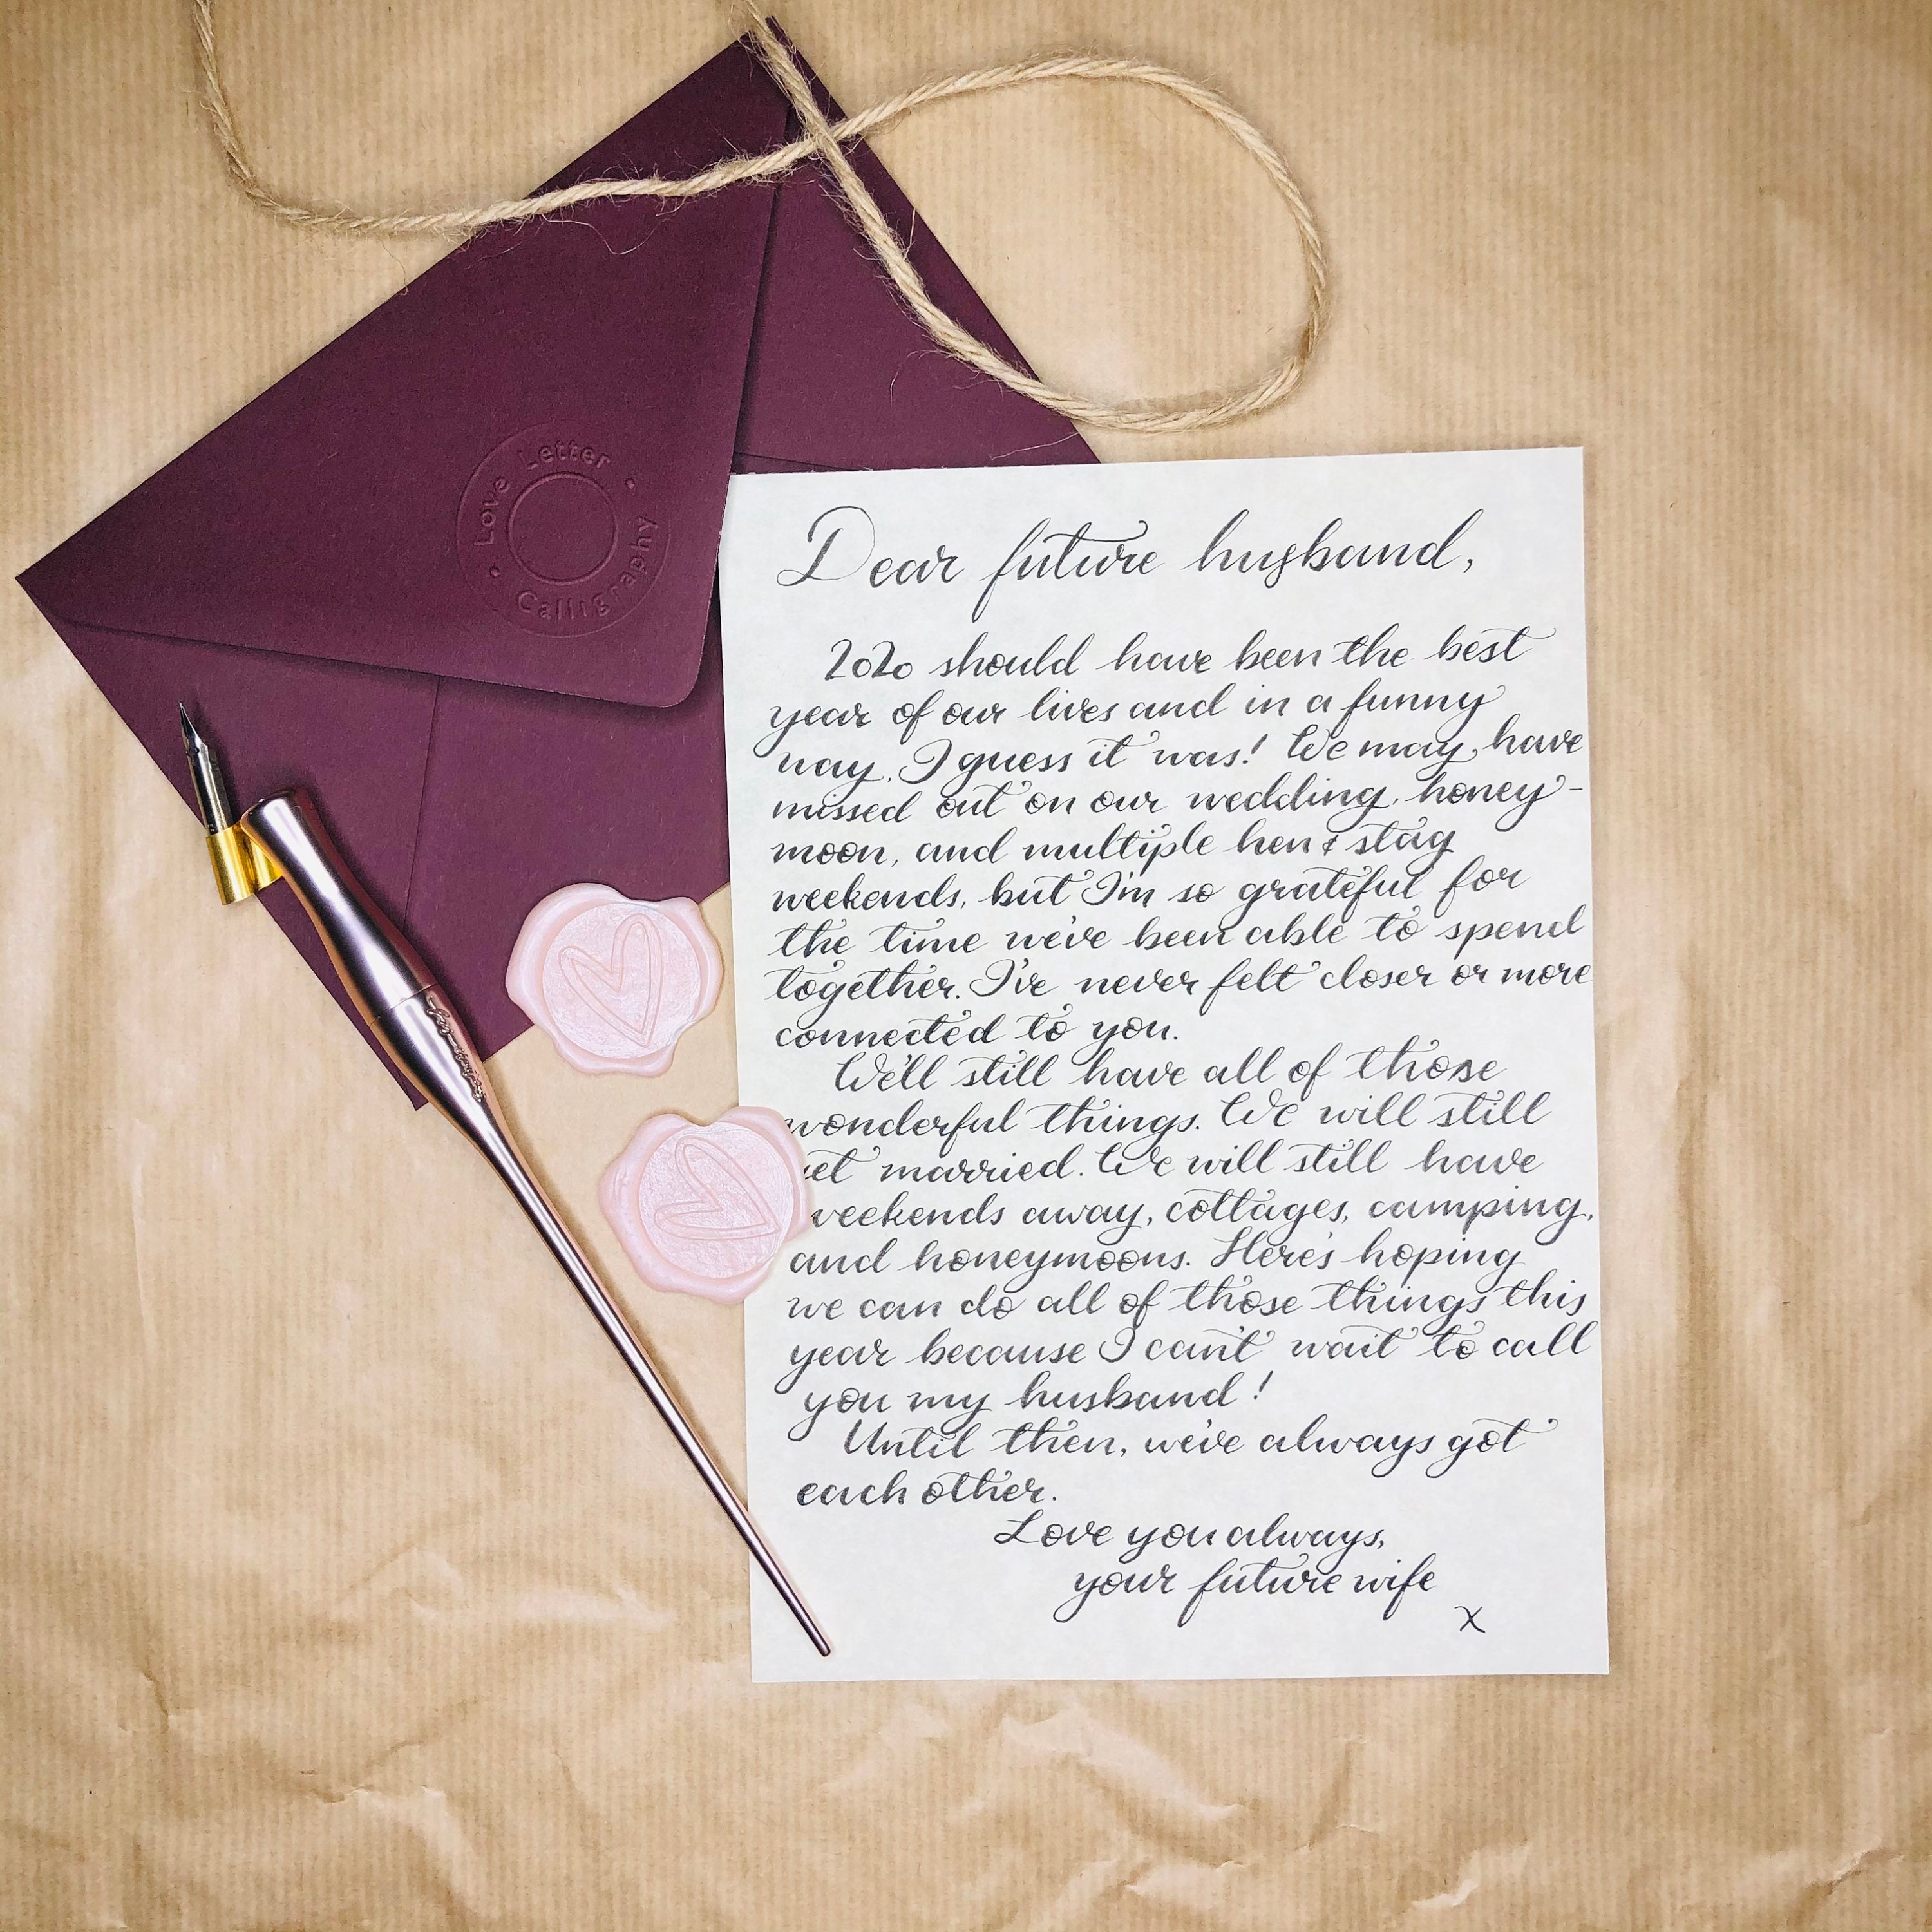 Love Letter
Calligraphy
Dear future husband,
2020 should have been the best
year of our lives and in a funny
way, I guess it was! We may have
missed out on our wedding, honey-
moon, and multiple hen & stag
weekends, but I'm so grateful for
the time we've been able to spend
together. I've never felt closer or more
connected to you.
We'll still have all of those
wonderful things. We will still
get married. We will still have
weekends away, cottages, camping,
and honeymoons. Here's hoping
we can do all of those things this
year because I can't wait to call
you my husband!
Until then, we've always got
each other.
Love you always,
your future wife
x